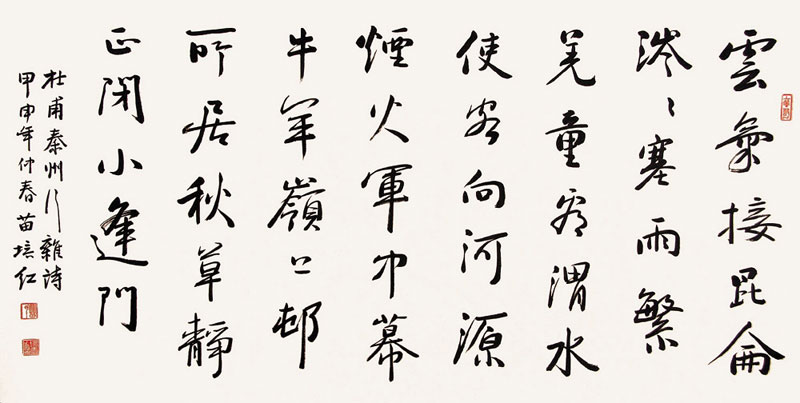 雲氣接昆侖
涔〻塞雨繁
羌童看渭水
使客向河源
煙火軍中幕
牛羊嶺上邨
所居秋草靜
正閉小逢門
杜甫秦州行雜詩
甲申年仲春苗培红